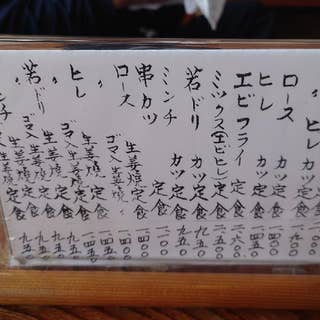 〃 ヒレカツ定食 一、九〇〇
ロースカツ定食 一、四〇〇
ヒレカツ定食 一、四五〇
エビフライ定食 二、六〇〇
ミックス(エビヒレ)定食 二、一五〇
若ドリカツ定食 九五〇
ミンチ〃定食 九五〇
串カツ定食 一、一〇〇
ロース生姜焼定食 一、四〇〇
〃ゴマ入生姜焼〃 一、四〇〇
ヒレ生姜焼定食 一、四五〇
〃ゴマ入生姜焼定食 一、四五〇
若ドリ生姜焼定食 九五〇
〃ゴマ入生姜焼定食 九五〇
ンチ生姜焼定食 九五〇